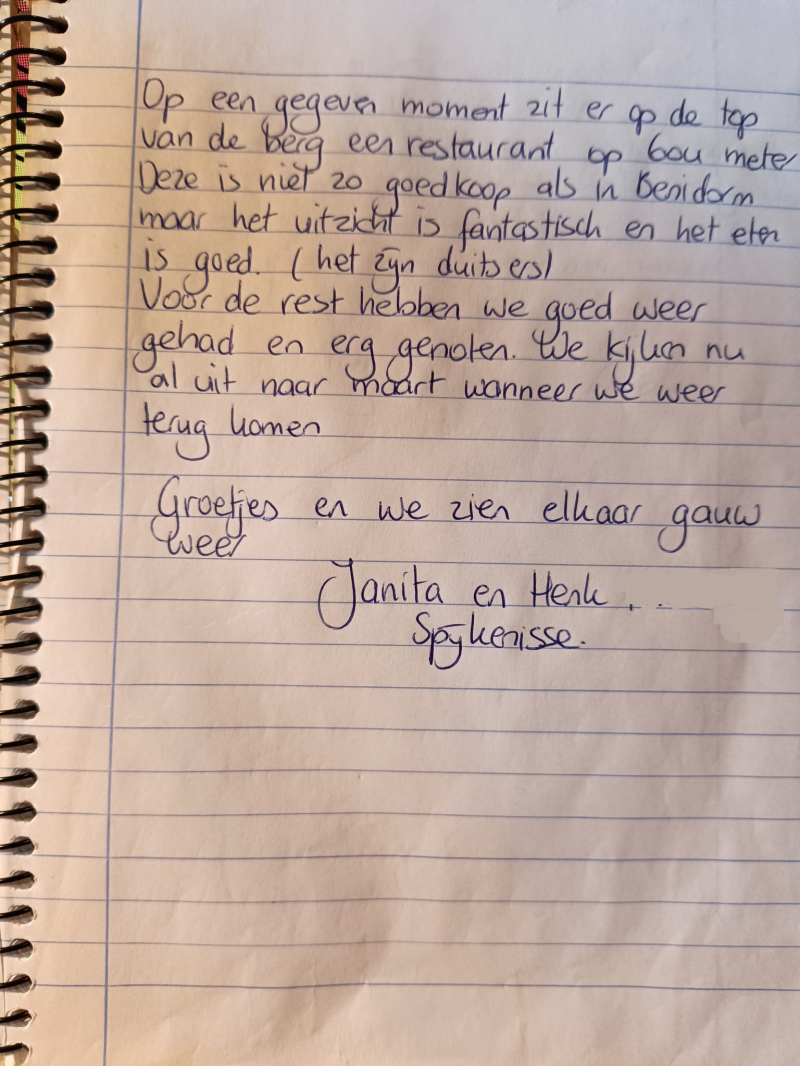 Op een gegeven moment zit er op de top
van de berg een restaurant op 600 meter
Deze is niet zo goedkoop als in Benidorm
maar het uitzicht is fantastisch en het eten
is goed. (het zijn duitsers)
Voor de rest hebben we goed weer
gehad en erg genoten. We kijken nu
al uit naar maart wanneer we weer
terug komen
Groetjes en we zien elkaar gauw
weer
Janita en Henk . . .
Spijkenisse.